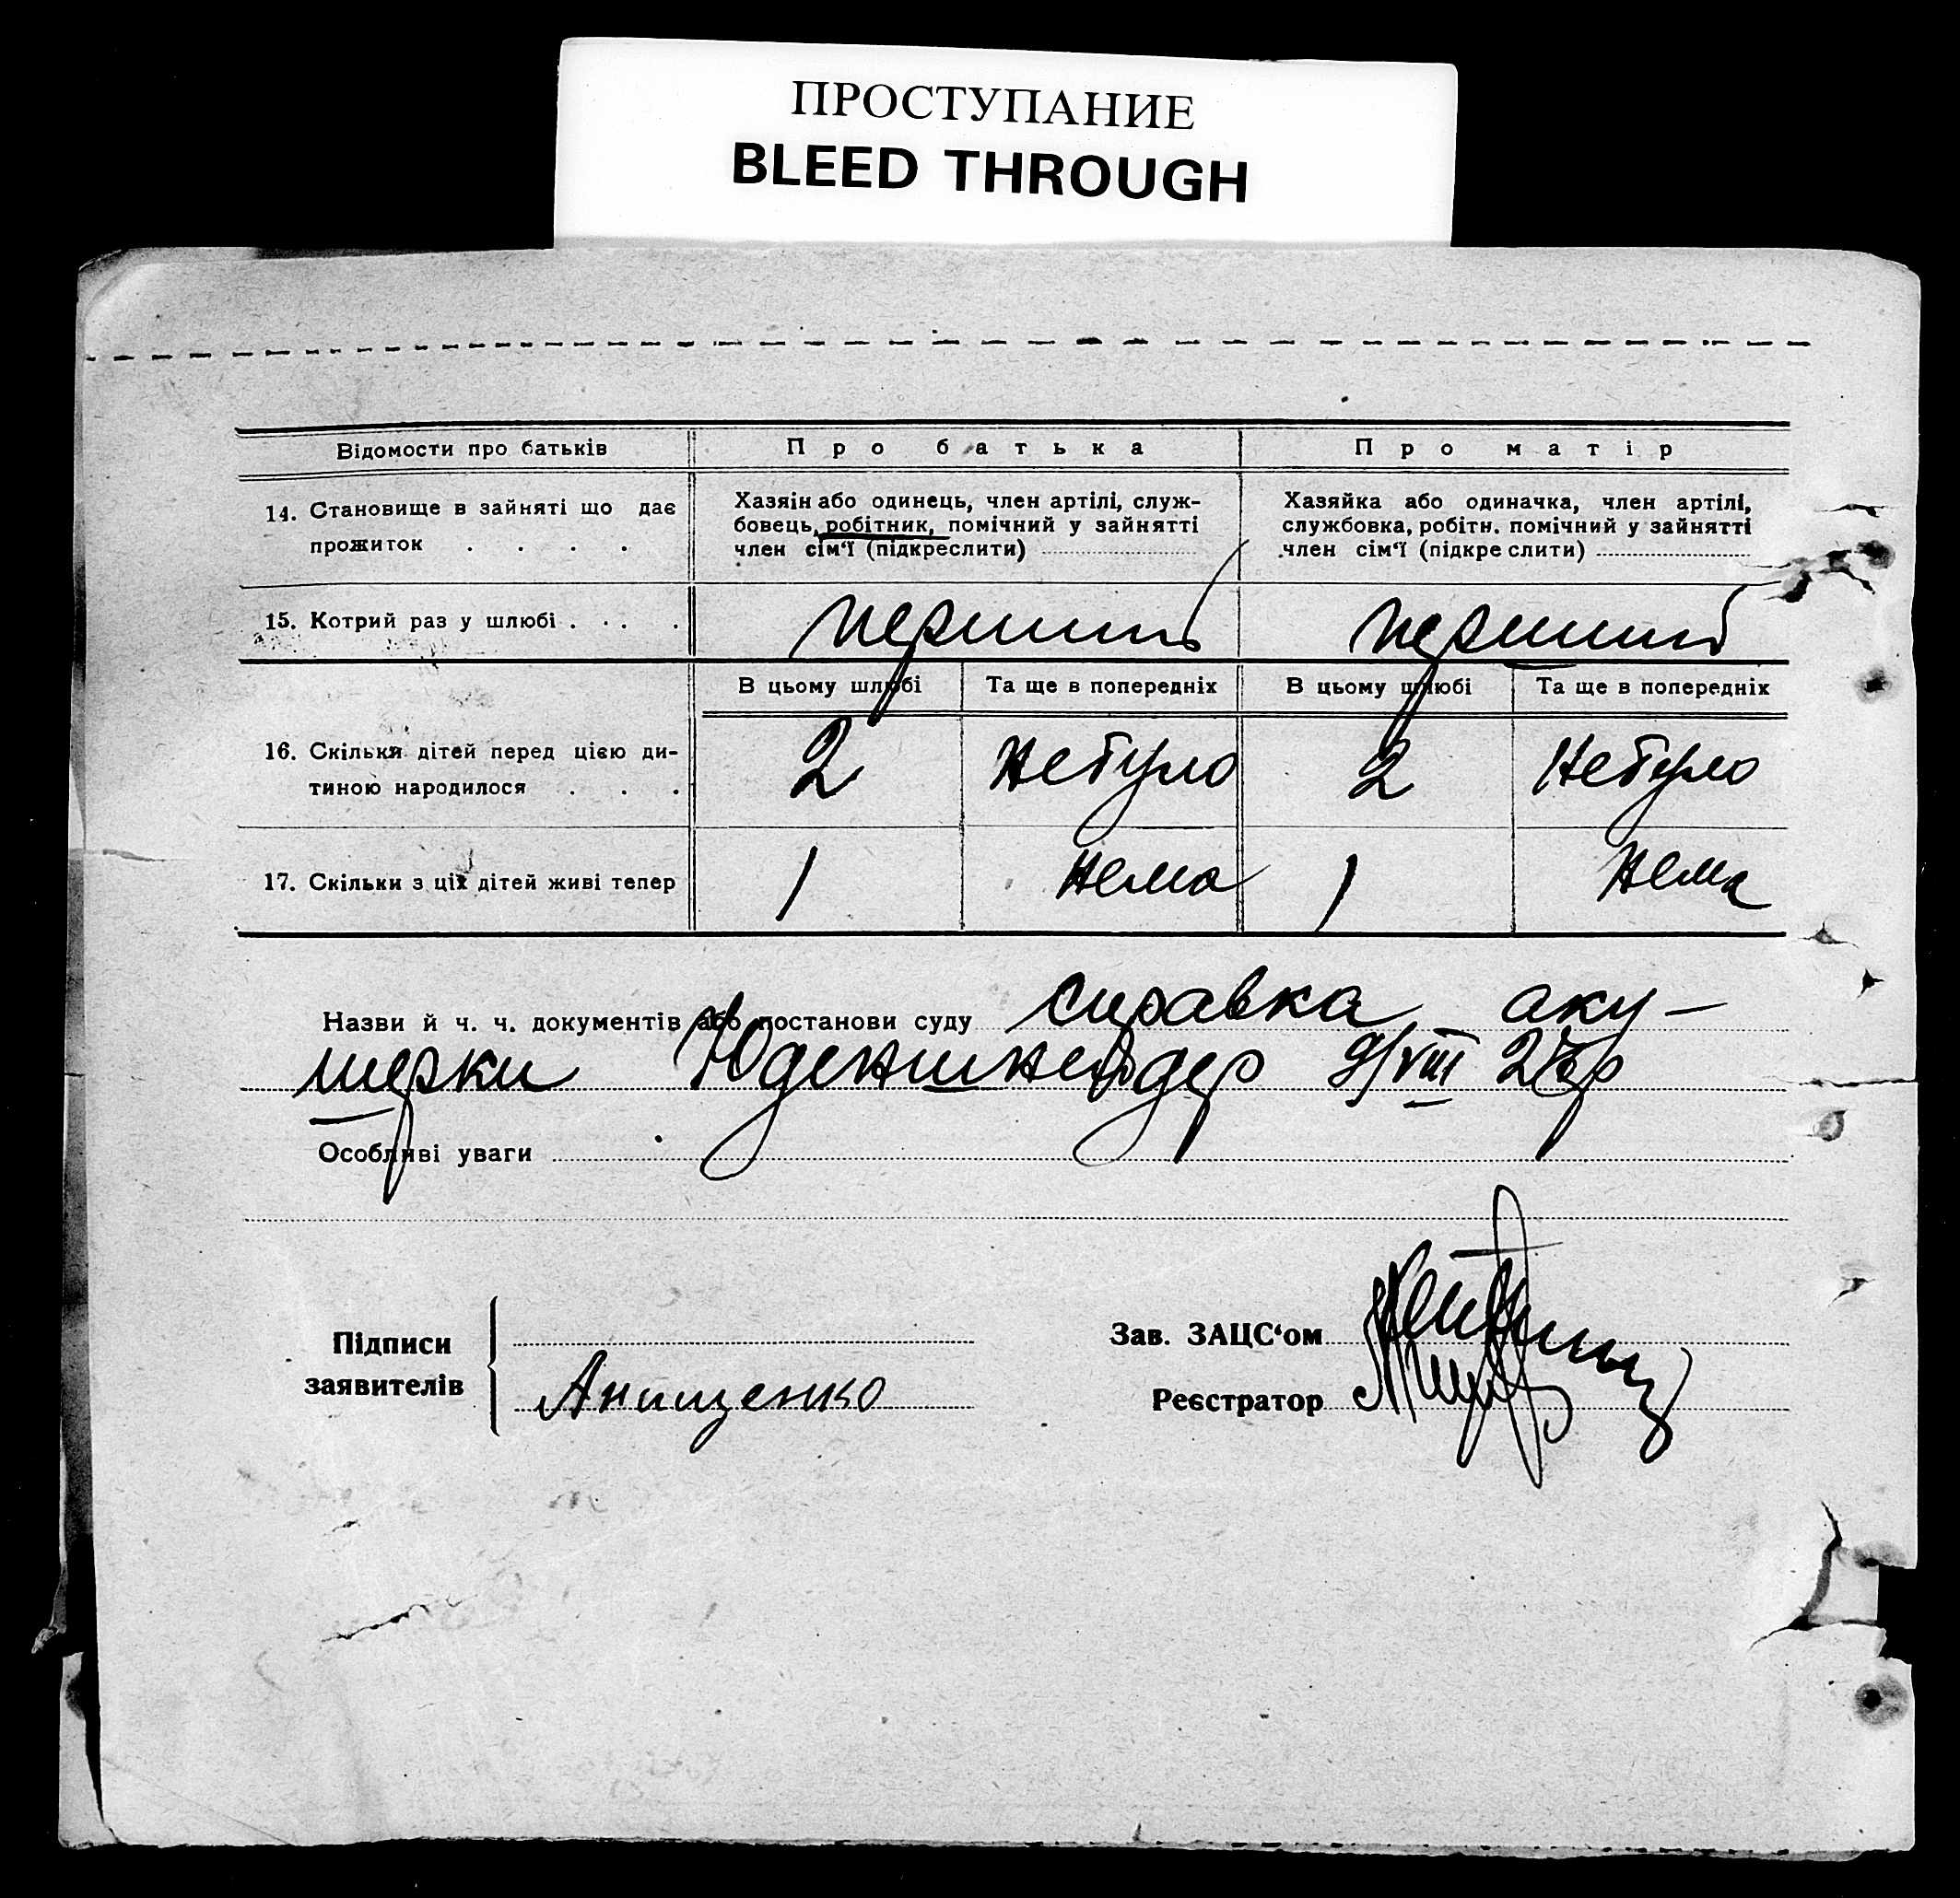 ПРОСТУПАНИЕ
BLEED THROUGH
Відомости про батьків
Про батька
Про матір
14. Становище в зайняті що дає
прожиток . . . .
Хазяін або одинець, член артілі, служ-
бовець, робітник, помічний у зайнятті
член сім‘ї (підкреслити)
Хазяйка або одиначка, член артілі,
службовка, робітн. помічний у зайнятті
член сім‘ї (підкре слити)
15. Котрий раз у шлюбі . . . .
перший
перший
В цьому шлюбі
Та ще в попередніх
В цьому шлюбі
Та ще в попередніх
16. Скільки дітей перед цією ди-
тиною народилося . . .
2
Небуло
2
Небуло
17. Скільки з ціх дітей живі тепер
1
Нема
1
Нема
Назви й ч. ч. документів або постанови суду справка аку-
шерки Юденшнейдер 9/VIII
Особливі уваги
Підписи
заявителів
Анищенко
Зав. ЗАЦС‘ом
Реєстратор